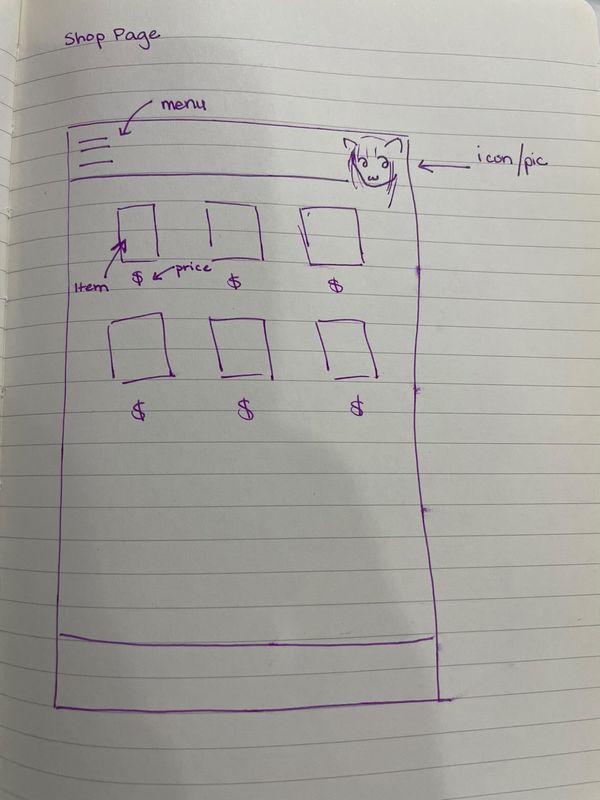 Shop Page
menu
icon/pic
Item
price
$
$
$
$
$
$